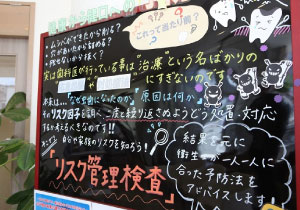 ・ムシバができたから削る？
・穴があいたから詰める？
・死せないから抜く？
これって当たり前？
実は歯科医が行っている事は治療という名ばかりの
にすぎないのです
本来は…なぜ虫歯になったのか？原因は何か？
そのリスク因子を調べ、二度と繰り返さぬようどう処置・対応
するか考えるべきなのです!!
自らや家族のリスクを知ろう！
「リスク管理検査」
結果を元に
衛生士が一人一人に
合った予防法を
アドバイスします！